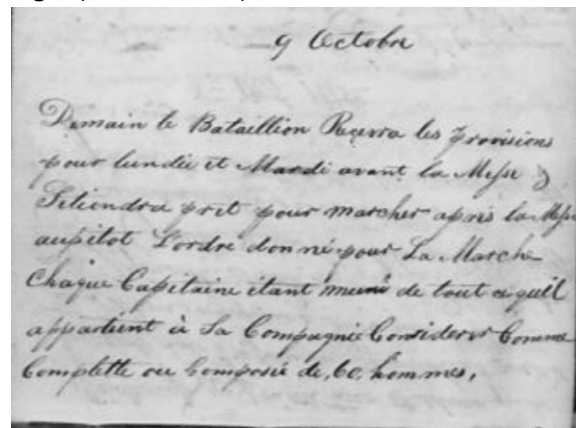 9 Octobre
Demain le Bataillion Recevra les provisions
pour lundie et Mardi avant la Messe &
Setiendra pret pour marcher après la Messe
aussitot L'ordre donné pour La Marche
Chaque Capitaine étant muni de tout ce quil
appartient à Sa Compagnie Considerer Comme
Complette ou Composée de, 60, hommes,